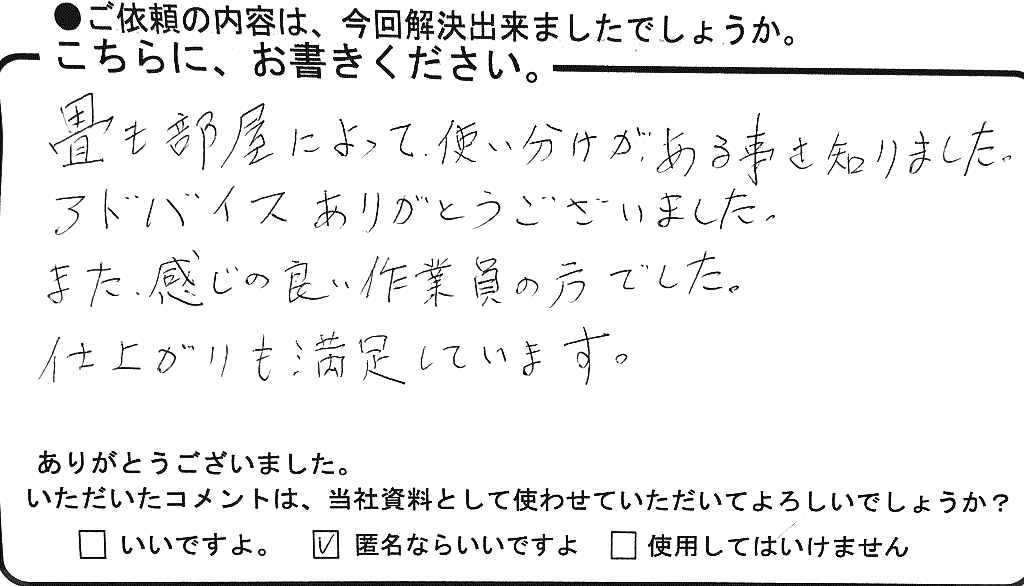 ●ご依頼の内容は、今回解決出来ましたでしょうか。
こちらに、お書きください。
畳も部屋によって、使い分けがある事を知りました。
アドバイスありがとうございました。
また、感じの良い作業員の方でした。
仕上がりも満足しています。
ありがとうございました。
いただいたコメントは、当社資料として使わせていただいてよろしいでしょうか？
□ いいですよ。 ☑ 匿名ならいいですよ □ 使用してはいけません